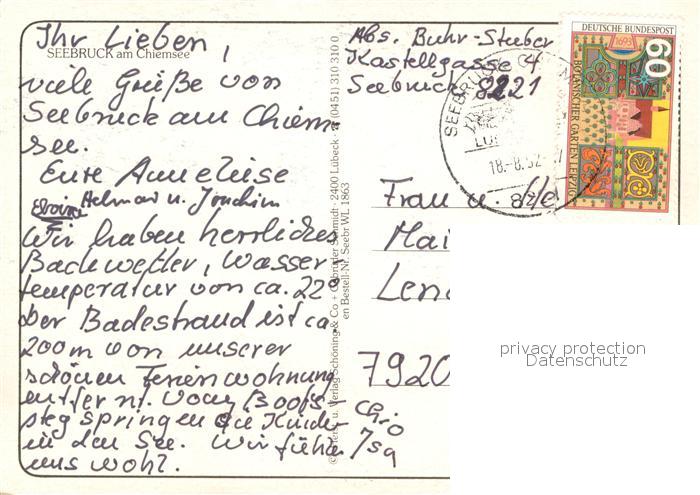 Ihr Lieben,
SEEBRUCK am Chiemsee
viele Grüße von
Seebruck am Chiem-
see.
Eure Anneliese
Helmar u. Joachim
Wir haben herrliches
Badewetter, Wasser-
temperatur von ca. 22°
Der Badestrand ist ca.
200 m von unserer
schönen Ferienwohnung
entfernt. Vom Boots-
steg springen die Kinder
in den See. Wir fühlen
uns wohl.
Verlag Schöning & Co + Gebrüder Schmidt · 2400 Lübeck ☎ (0451) 310 310 0
Bestell-Nr. Seebr WL 1863
Abs. Buhr-Stuber
Kastellgasse 4
Seebruck 8221
DEUTSCHE BUNDESPOST
1693
60
BOTANISCHER GARTEN LEIPZIG
SEEBRUCK
18.-8.92
822
Frau u.
Mai
Len
7920
privacy protection
Datenschutz